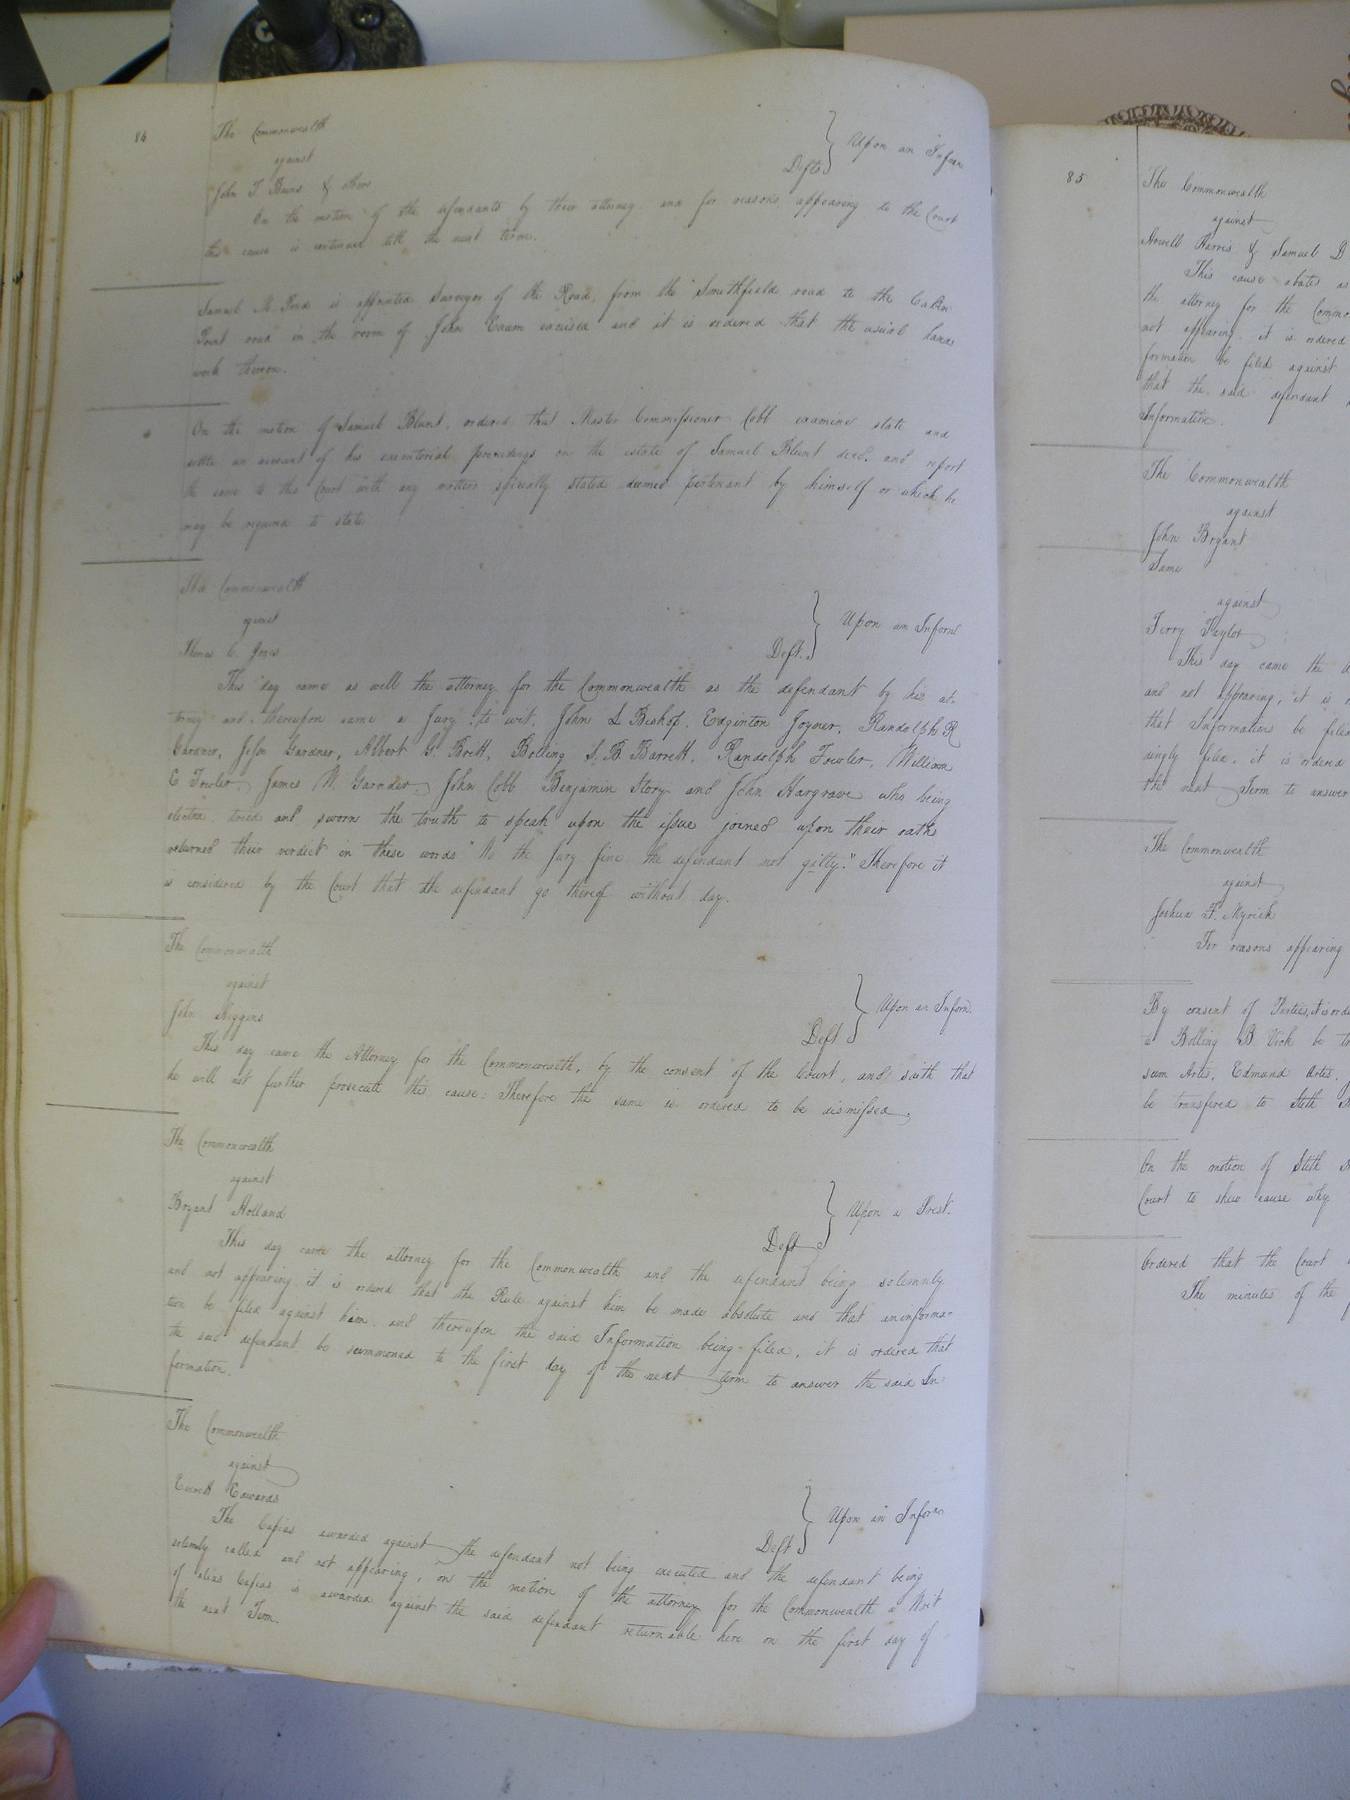 84
The Commonwealth
against
John T. Burns & others Defts } Upon an Inform
On the motion of the defendants by their attorney and for reasons appearing to the Court
this cause is continued till the next term.
Samuel is appointed Surveyor of the Road, from the Smithfield road to the Cabin
Point road in the room of John excused and it is ordered that the usual hands
work thereon.
On the motion of Samuel Blunt, ordered that Master Commissioner Cobb examine state and
settle an account of his executorial proceedings on the estate of Samuel Blunt decd. and report
the same to this Court with any matters specially stated deemed pertenant by himself or which he
may be required to state
The Commonwealth
against
Thomas C. Jones Deft. } Upon an Informn
This day came as well the attorney for the Commonwealth as the defendant by his at-
torney and thereupon came a Jury to wit, John L Bishop, Edginton Joyner, Randolph R
Gardner, Jesse Gardner, Albert G. Brett, Bolling S. B. Barrett, Randolph Fowler, William
E Fowler, James W. Garnder, John Cobb Benjamin Story and John Hargrave who being
elected tried and sworn the truth to speak upon the issue joined upon their oaths
returned their verdict in these words "We the Jury fine the defendant not gilty." Therefore it
is considered by the Court that the defendant go thereof without day.
The Commonwealth
against
John Higgins Deft } Upon an Inform
This day came the Attorney for the Commonwealth, by the consent of the Court, and saith that
he will not further prosecute this cause: Therefore the same is ordered to be dismissed,
The Commonwealth
against
Bryant Holland Deft } Upon a Prest.
This day came the attorney for the Commonwealth and the defendant being solemnly
and not appearing it is ordered that the Rule against him be made absolute and that an informa-
tion be filed against him. and thereupon the said Information being filed, it is ordered that
the said defendant be summoned to the first day of the next term to answer the said In-
formation.
The Commonwealth
against
Everett Edwards Deft } Upon an Inform
The Capias awarded against the defendant not being executed and the defendant being
solemnly called and not appearing, on the motion of the attorney for the Commonwealth a Writ
of alias Capias is awarded against the said defendant returnable here on the first day of
the next Term.
85
The Commonwealth
against
Harris & Samuel D
This cause abates as
the attorney for the Common
not appearing it is ordered
formation be filed against
that the said defendant
Information.
The Commonwealth
against
John Bryant
Same
against
Terry Taylor
This day came the
and not appearing, it is
that Informations be filed
ingly filed, it is ordered
the next Term to answer
The Commonwealth
against
Joshua F. Myrick
For reasons appearing
By consent of Parties, it is orde
Bolling B Vick be
Artis, Edmund Artis,
be transfered to Steth
On the motion of Steth
Court to shew cause why
Ordered that the Court
The minutes of the